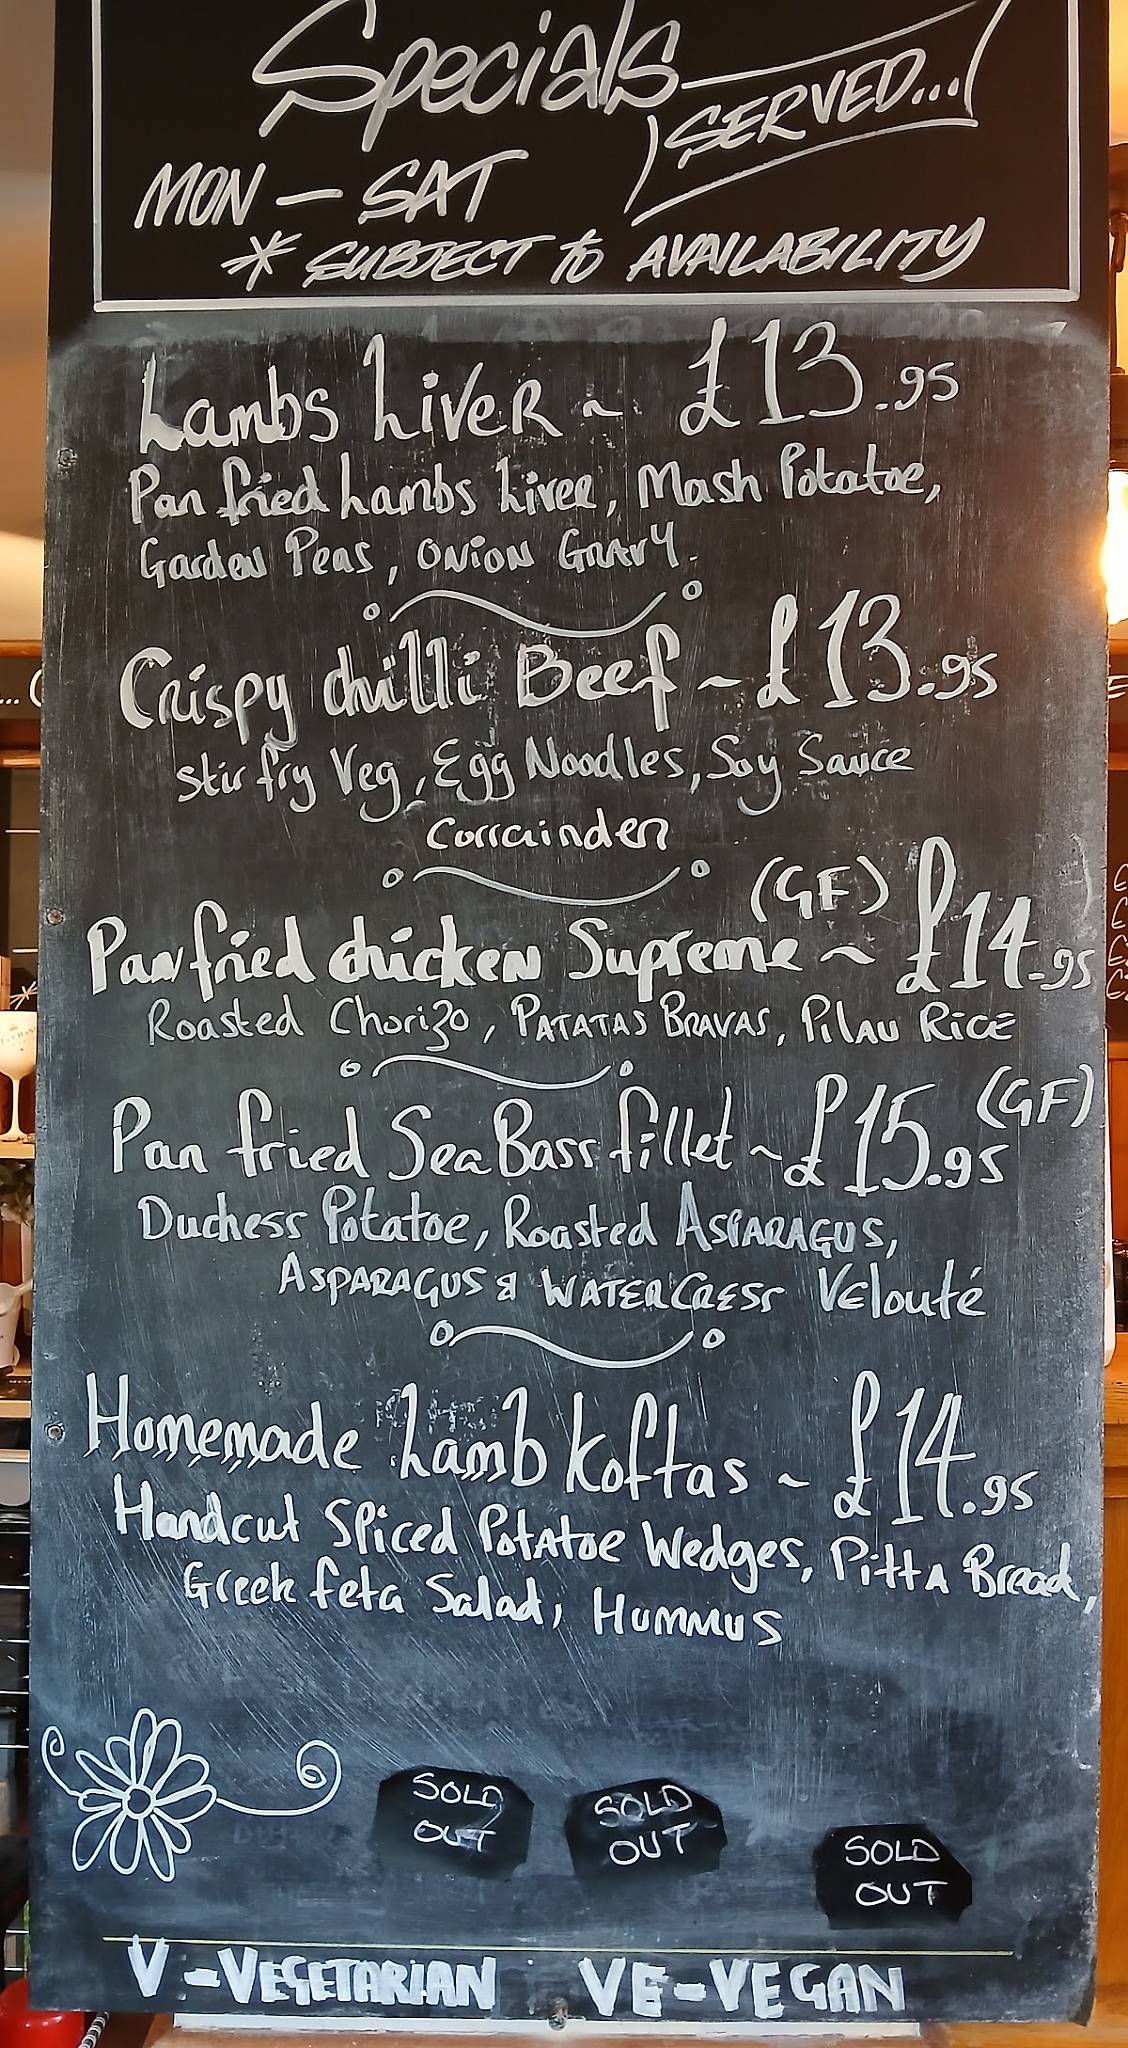 Specials
SERVED...
MON - SAT
* SUBJECT to AVAILABILITY
Lambs Liver ~ £13.95
Pan fried Lambs Liver, Mash Potatoe,
Garden Peas, Onion Gravy.
Crispy chilli Beef ~ £13.95
Stir fry Veg, Egg Noodles, Soy Sauce
Corrainder
(GF)
Pan fried chicken Supreme ~ £14.95
Roasted Chorizo, PATATAS BRAVAS, PILAU RICE
(GF)
Pan fried Sea Bass fillet ~ £15.95
Duchess Potatoe, Roasted ASPARAGUS,
ASPARAGUS & WATERCRESS Velouté
Homemade Lamb Koftas ~ £14.95
Handcut Spiced Potatoe Wedges, Pitta Bread,
Greek feta Salad, HUMMUS
SOLD OUT
SOLD OUT
SOLD OUT
V - VEGETARIAN VE - VEGAN